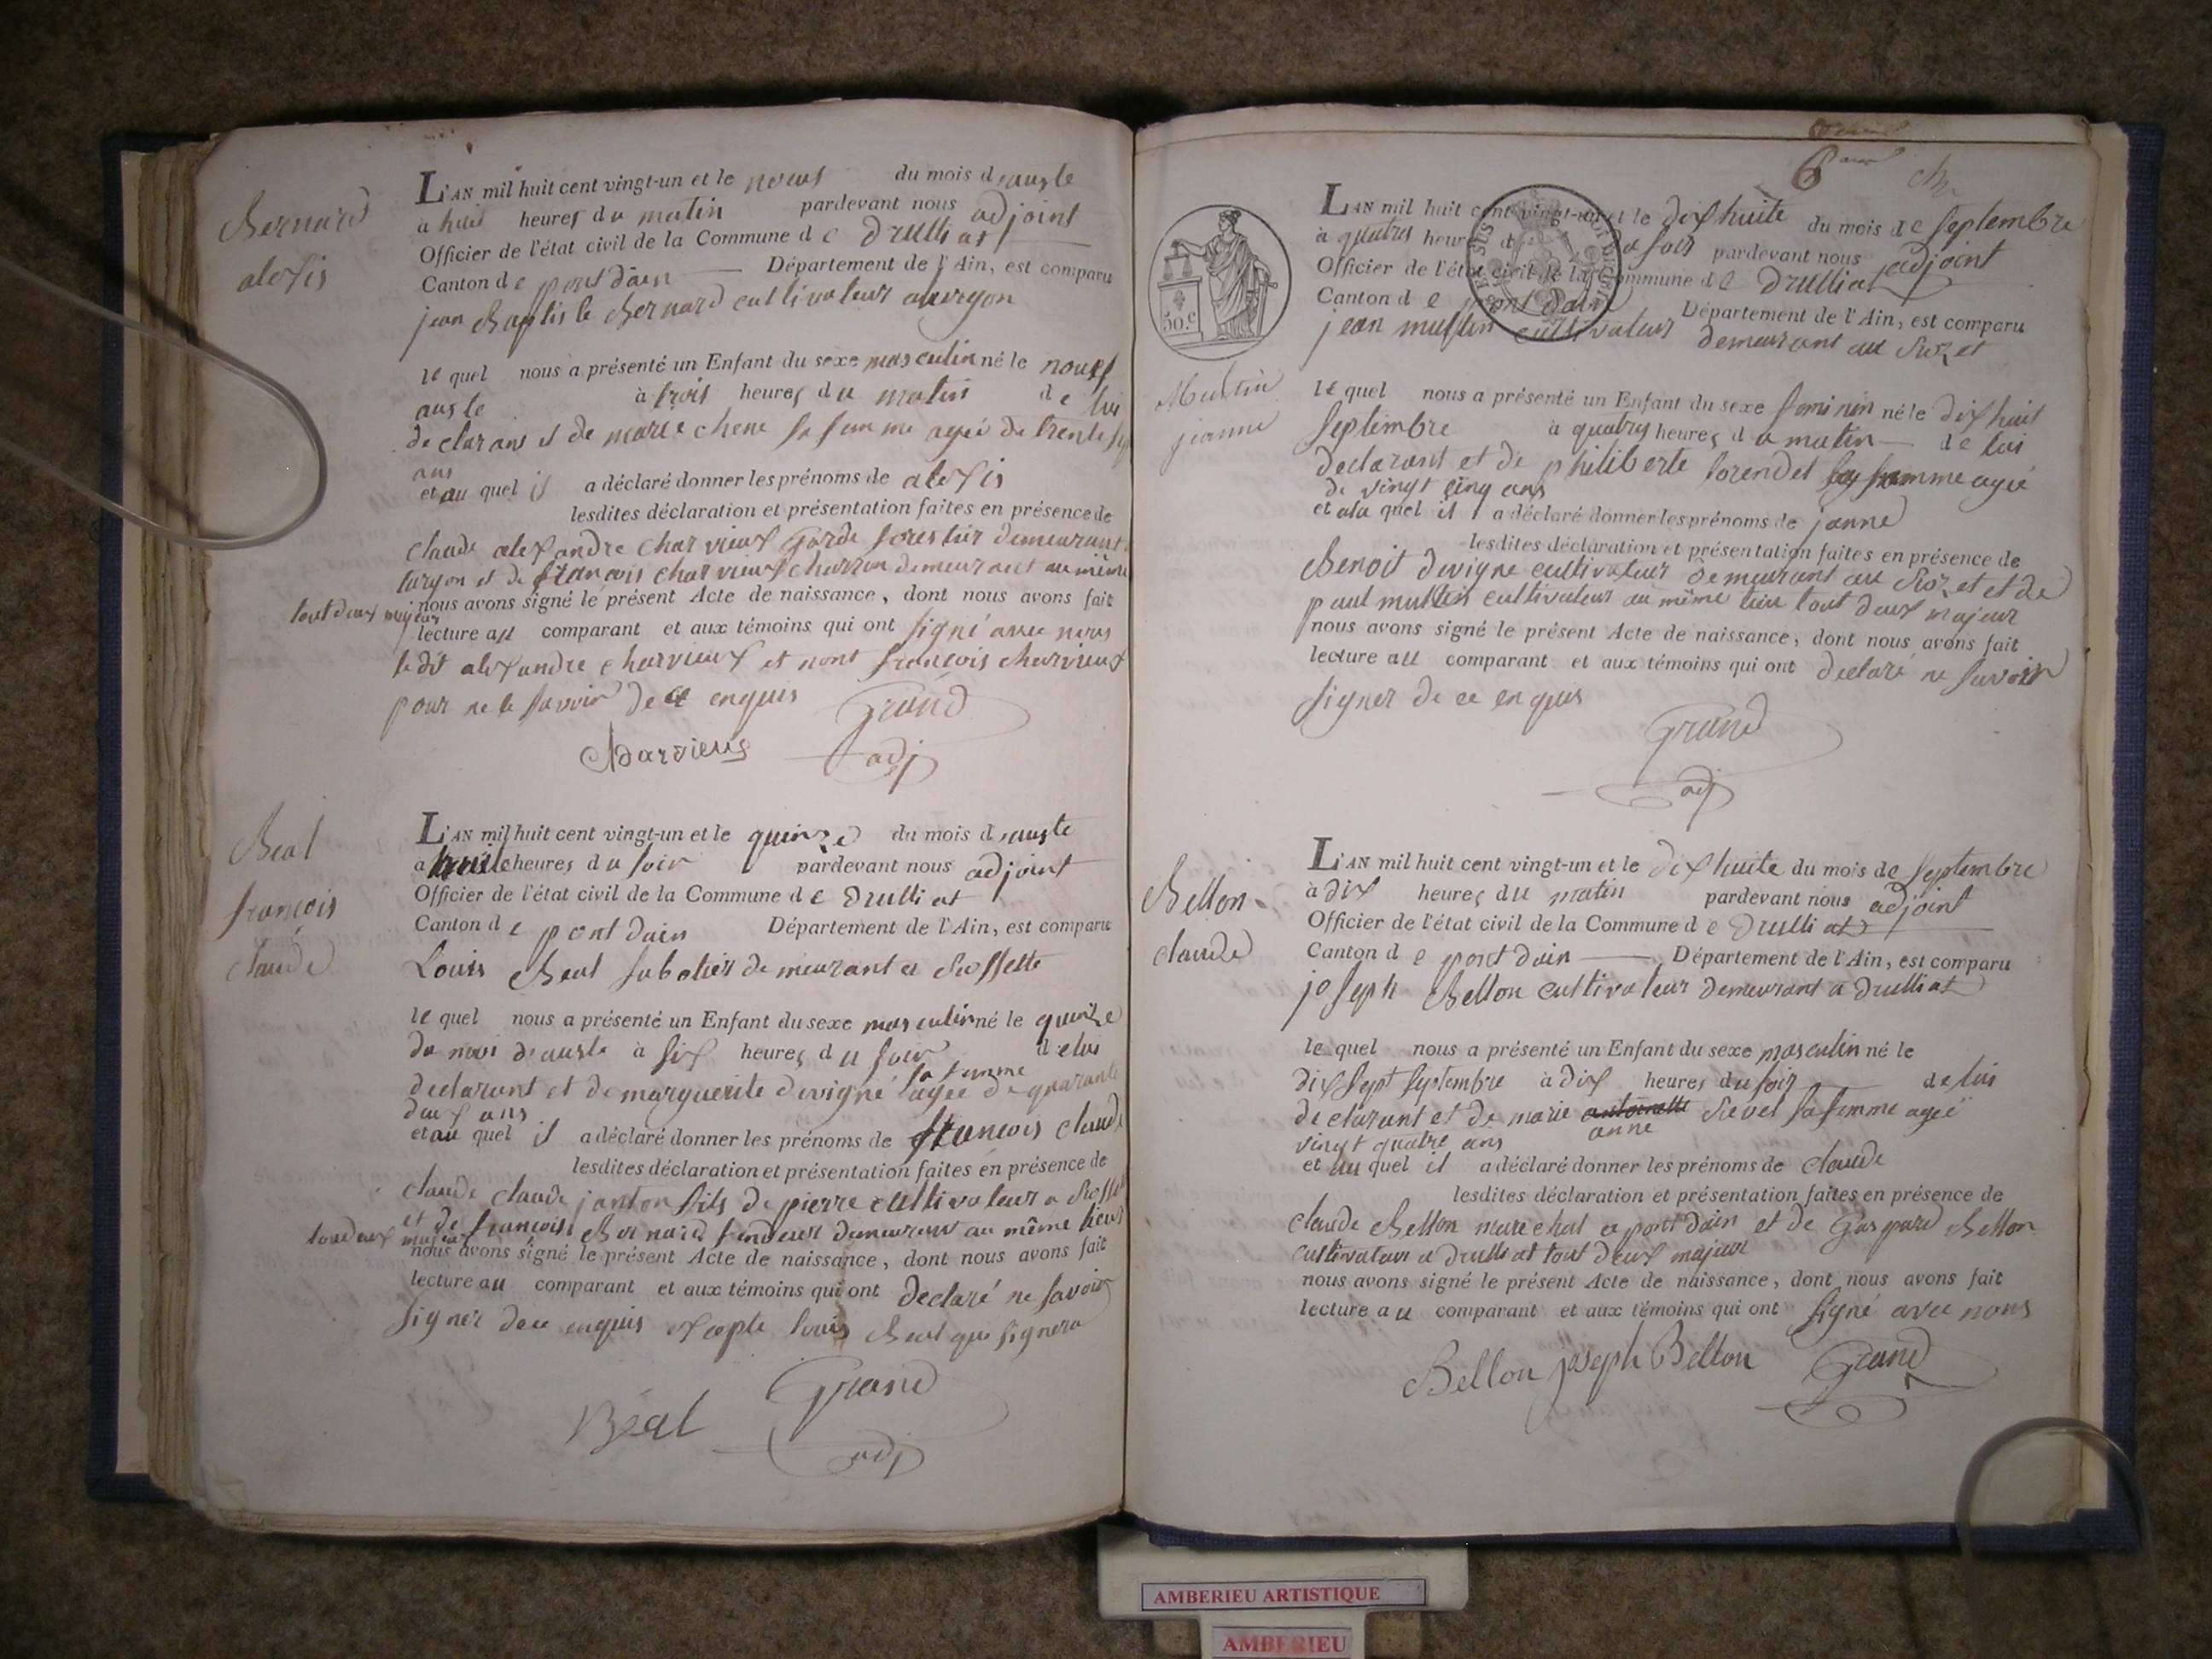 Bernard
alexis
L'AN mil huit cent vingt-un et le neuf du mois d'auste
à huit heures du matin pardevant nous adjoint
Officier de l'état civil de la Commune de Drulliat
Canton de pont dain Département de l'Ain, est comparu
jean Baptiste Bernard cultivateur a
le quel nous a présenté un Enfant du sexe masculin né le nouf
auste à trois heures du matin de lui
declarans et de marie chene sa femme agée de trente
ans
et au quel il a déclaré donner les prénoms de alexis
lesdites déclaration et présentation faites en présence de
claude alexandre charvieux garde forestier demeurant
turgon et de francois charvieux charron demeurant au même
tout deux majeur
nous avons signé le présent Acte de naissance, dont nous avons fait
lecture au comparant et aux témoins qui ont signé avec nous
ledit alexandre charvieux et nont francois charvieux
pour ne le savoir de ce enquis Grand
Charvieux adj
Beal
francois
claude
L'AN mil huit cent vingt-un et le quinze du mois d'auste
a huit heures du soir pardevant nous adjoint
Officier de l'état civil de la Commune de Drulliat
Canton de pont dain Département de l'Ain, est comparu
Louis Beal sabotier demeurant a Rossette
le quel nous a présenté un Enfant du sexe masculin né le quinze
du mois d'auste à six heures du soir de lui
declarant et de marguerite devigne sa femme agée de quarante
deux ans
et au quel il a déclaré donner les prénoms de francois claude
lesdites déclaration et présentation faites en présence de
claude claude janton fils de pierre cultivateur a
et de francois Bernard fendeur demeurant au même lieux
tout deux majeur
nous avons signé le présent Acte de naissance, dont nous avons fait
lecture au comparant et aux témoins qui ont declaré ne savoir
signer de ce enquis excepte louis Beal qui signera
Béal Grand
adj
6
L'AN mil huit cent vingt-un et le dix huite du mois de septembre
à quatres heures du soir pardevant nous adjoint
Officier de l'état civil de la Commune de Drulliat
Canton de pont dain Département de l'Ain, est comparu
jean multin cultivateur demeurant au Rozet
50.c
Multin
jeanne
le quel nous a présenté un Enfant du sexe feminin né le dix huit
septembre à quatres heures du matin de lui
declarant et de philiberte sa femme agée
de vingt cinq ans
et ala quel il a déclaré donner les prénoms de janne
lesdites déclaration et présentation faites en présence de
Benoit devigne cultivateur demeurant au Rozet et de
paul multin cultivateur au même lieu tout deux majeur
nous avons signé le présent Acte de naissance, dont nous avons fait
lecture au comparant et aux témoins qui ont declaré ne savoir
signer de ce enquis
Grand
adj
Bellon
claude
L'AN mil huit cent vingt-un et le dix huite du mois de septembre
à dix heures du matin pardevant nous adjoint
Officier de l'état civil de la Commune de Drulliat
Canton de pont dain Département de l'Ain, est comparu
joseph Bellon cultivateur demeurant a drulliat
le quel nous a présenté un Enfant du sexe masculin né le
dix sept septembre à dix heures du soir de lui
declarant et de marie antoinette Revel sa femme agée
anne
vingt quatre ans
et au quel il a déclaré donner les prénoms de claude
lesdites déclaration et présentation faites en présence de
claude Bellon marechal a pont dain et de gaspard Bellon
cultivateur a drulliat tout deux majeur
nous avons signé le présent Acte de naissance, dont nous avons fait
lecture au comparant et aux témoins qui ont signé avec nous
Bellon joseph Bellon Grand
AMBERIEU ARTISTIQUE
AMBERIEU